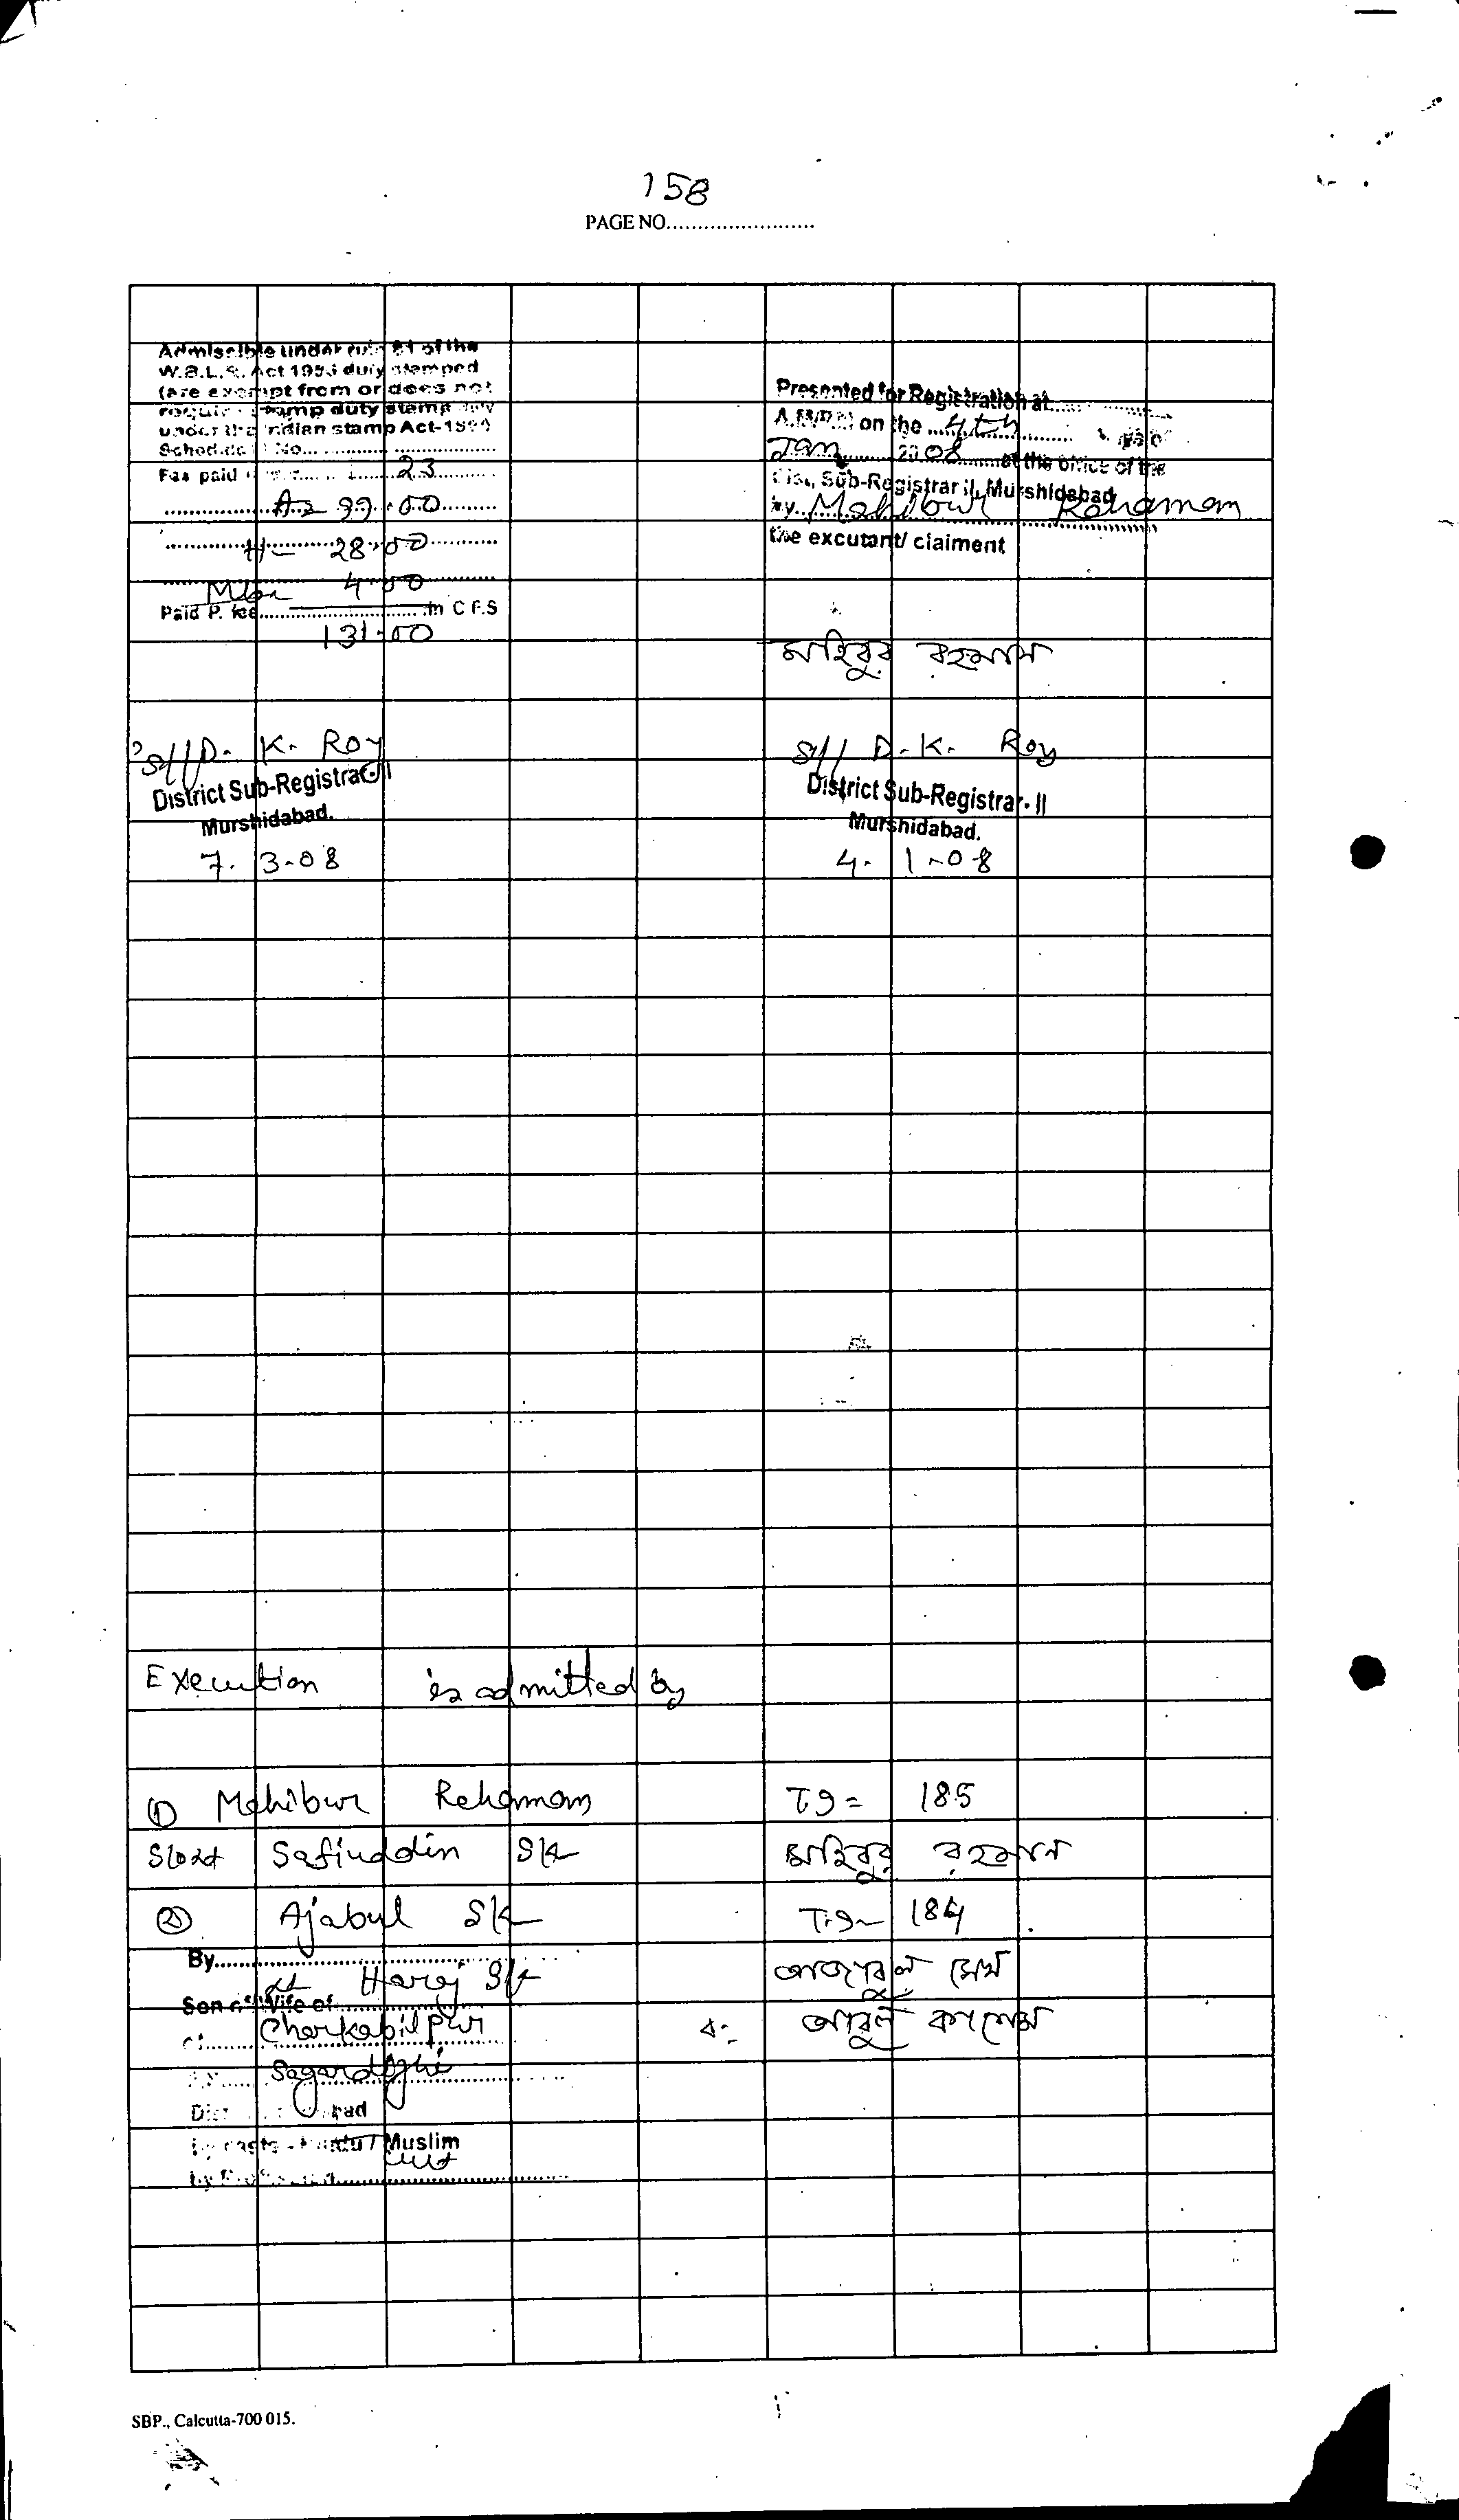 158
PAGE NO........................
Admissible under rule 61 of the
W.B.L.R. Act 1955 duly stamped
(are exempt from or does not
require stamp duty stamp duty
under the Indian stamp Act-1899
Schedule I No.
Fee paid 23
A= 99.00
H- 28.00
4.00
Paid P. fee in C F.S
131.00
S// D. K. Roy
District Sub-Registrar-II
Murshidabad.
7. 3-08
Presented for Registration at
A.M/P.M on the 4th
Jan 2008 at the office of the
Dist, Sub-Registrar II, Murshidabad
by Mohibur Rahaman
the excutant/ claiment
মহিবুর রহমান
S// D. K. Roy
District Sub-Registrar- II
Murshidabad.
4. 1-08
Execution is admitted by
① Mohibur Rehaman T.I= 185
Safiuddin Sk মহিবুর রহমান
② Ajabul Sk T.I- 184
By
Lt Haraj Sk আজাবুল সেখ
Son of Wife of
Charkabilpur ব- আবুল কাসেম
Sagardighi
Dist
by caste - Hindu / Muslim
by Profession
SBP., Calcutta-700 015.